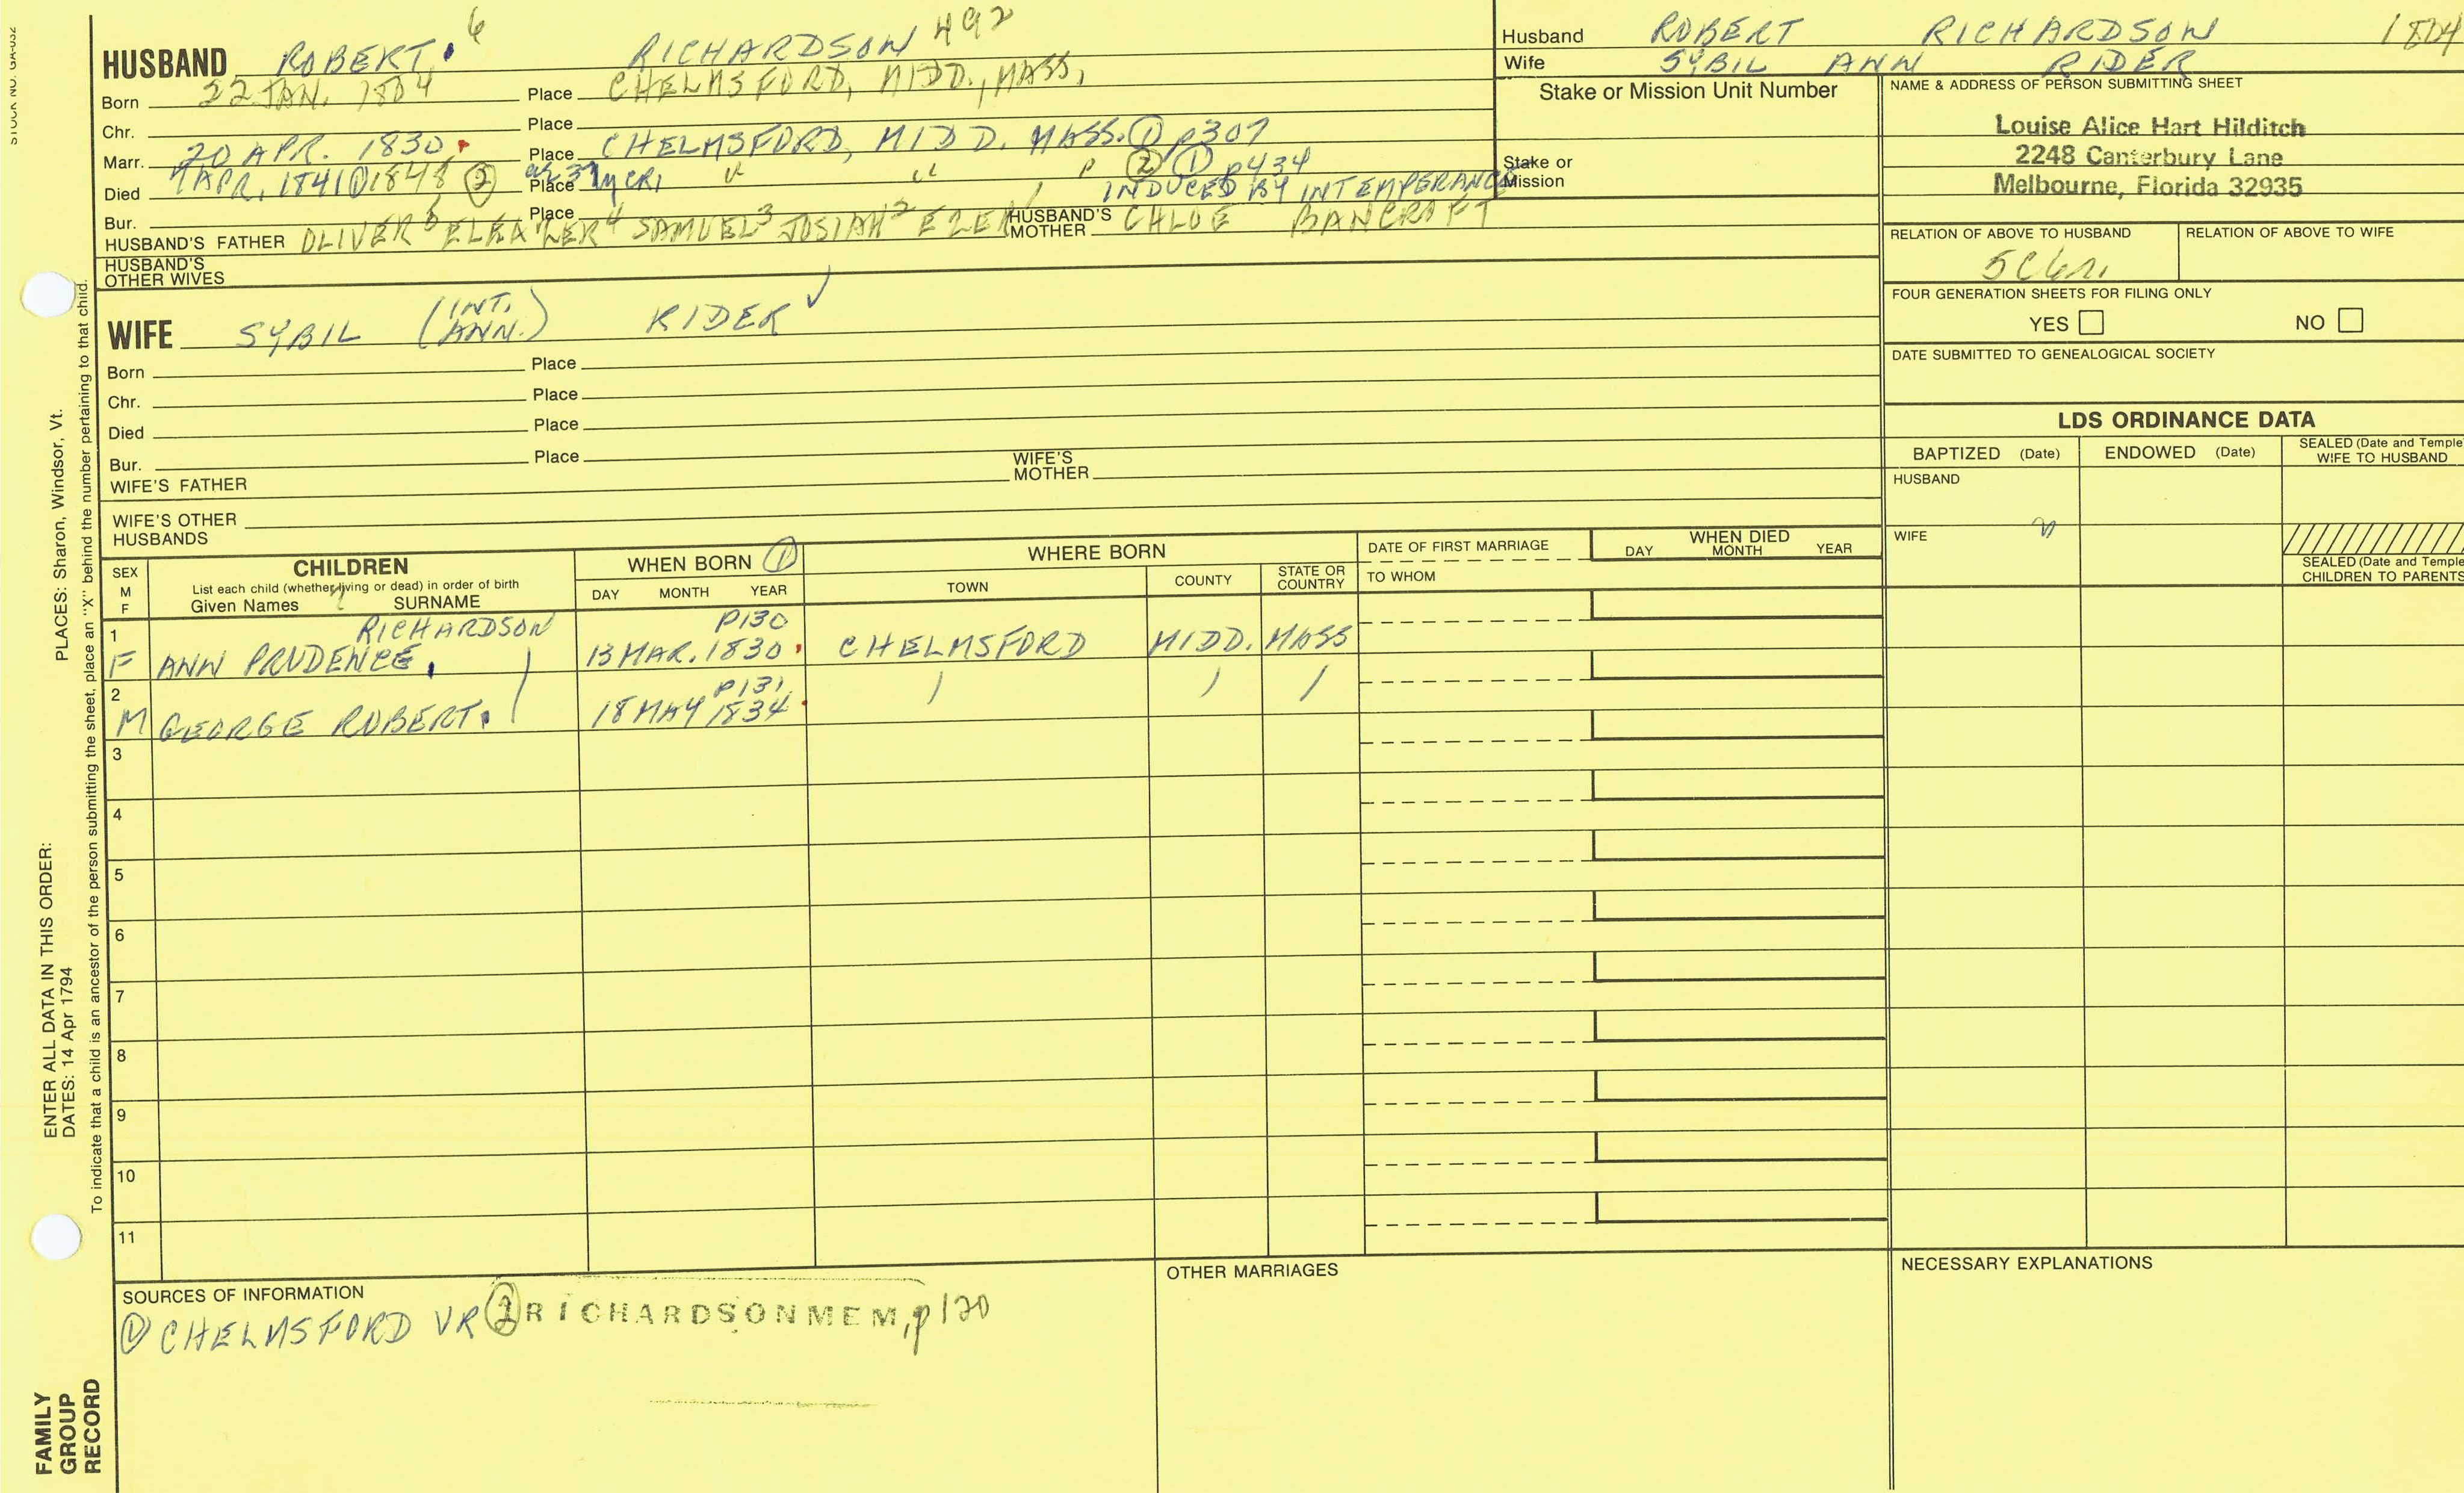 STOCK NO. GA-032
HUSBAND ROBERT.⁶ RICHARDSON 492
Born 22 JAN. 1804 Place CHELMSFORD, MIDD., MASS,
Chr. Place
Marr. 20 APR. 1830 Place CHELMSFORD, MIDD. MASS. ① p307
Died APR, 1841 ① 1848 ② Place " " ② ① p434
INDUCED BY INTEMPERANCE
Bur. Place
HUSBAND'S FATHER OLIVER⁵ ELEAZER⁴ SAMUEL³ JOSIAH² EZEK HUSBAND'S MOTHER CHLOE BANCROFT
HUSBAND'S OTHER WIVES
WIFE SYBIL (INT. ANN.) RIDER ✓
Born Place
Chr. Place
Died Place
Bur. Place
WIFE'S FATHER WIFE'S MOTHER
WIFE'S OTHER HUSBANDS
Husband ROBERT RICHARDSON 1804
Wife SYBIL ANN RIDER
Stake or Mission Unit Number
Stake or Mission
NAME & ADDRESS OF PERSON SUBMITTING SHEET
Louise Alice Hart Hilditch
2248 Canterbury Lane
Melbourne, Florida 32935
RELATION OF ABOVE TO HUSBAND RELATION OF ABOVE TO WIFE
5C6r.
FOUR GENERATION SHEETS FOR FILING ONLY
YES NO
DATE SUBMITTED TO GENEALOGICAL SOCIETY
LDS ORDINANCE DATA
BAPTIZED (Date) ENDOWED (Date) SEALED (Date and Temple) WIFE TO HUSBAND
HUSBAND
WIFE
SEALED (Date and Temple) CHILDREN TO PARENTS
SEX M F
CHILDREN
List each child (whether living or dead) in order of birth
Given Names SURNAME
WHEN BORN ①
DAY MONTH YEAR
WHERE BORN
TOWN COUNTY STATE OR COUNTRY
DATE OF FIRST MARRIAGE
TO WHOM
WHEN DIED
DAY MONTH YEAR
1 RICHARDSON P130
F ANN PRUDENCE. 13 MAR. 1830 CHELMSFORD MIDD. MASS
2 P131
M GEORGE ROBERT. 18 MAY 1834
3
4
5
6
7
8
9
10
11
SOURCES OF INFORMATION
① CHELMSFORD VR ② RICHARDSON MEM, p120
OTHER MARRIAGES
NECESSARY EXPLANATIONS
PLACES: Sharon, Windsor, Vt.
ENTER ALL DATA IN THIS ORDER:
DATES: 14 Apr 1794
To indicate that a child is an ancestor of the person submitting the sheet, place an "X" behind the number pertaining to that child.
FAMILY
GROUP
RECORD